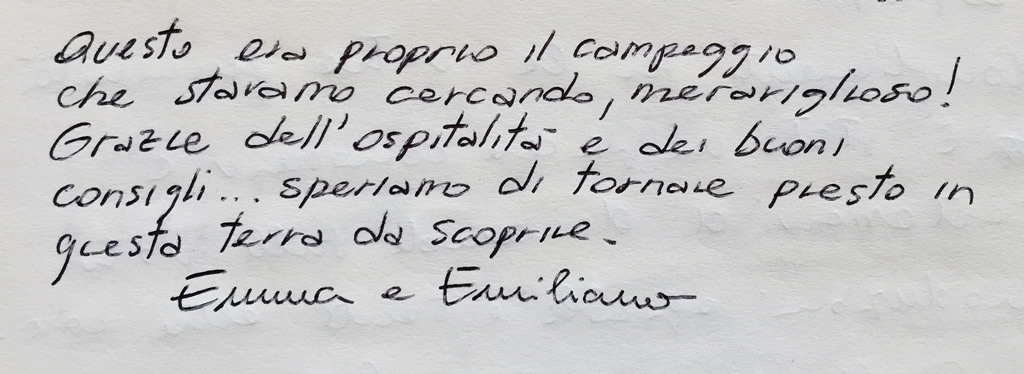 Questo era proprio il campeggio
che stavamo cercando, meraviglioso!
Grazie dell'ospitalità e dei buoni
consigli... speriamo di tornare presto in
questa terra da scoprire.
Emma e Emiliano